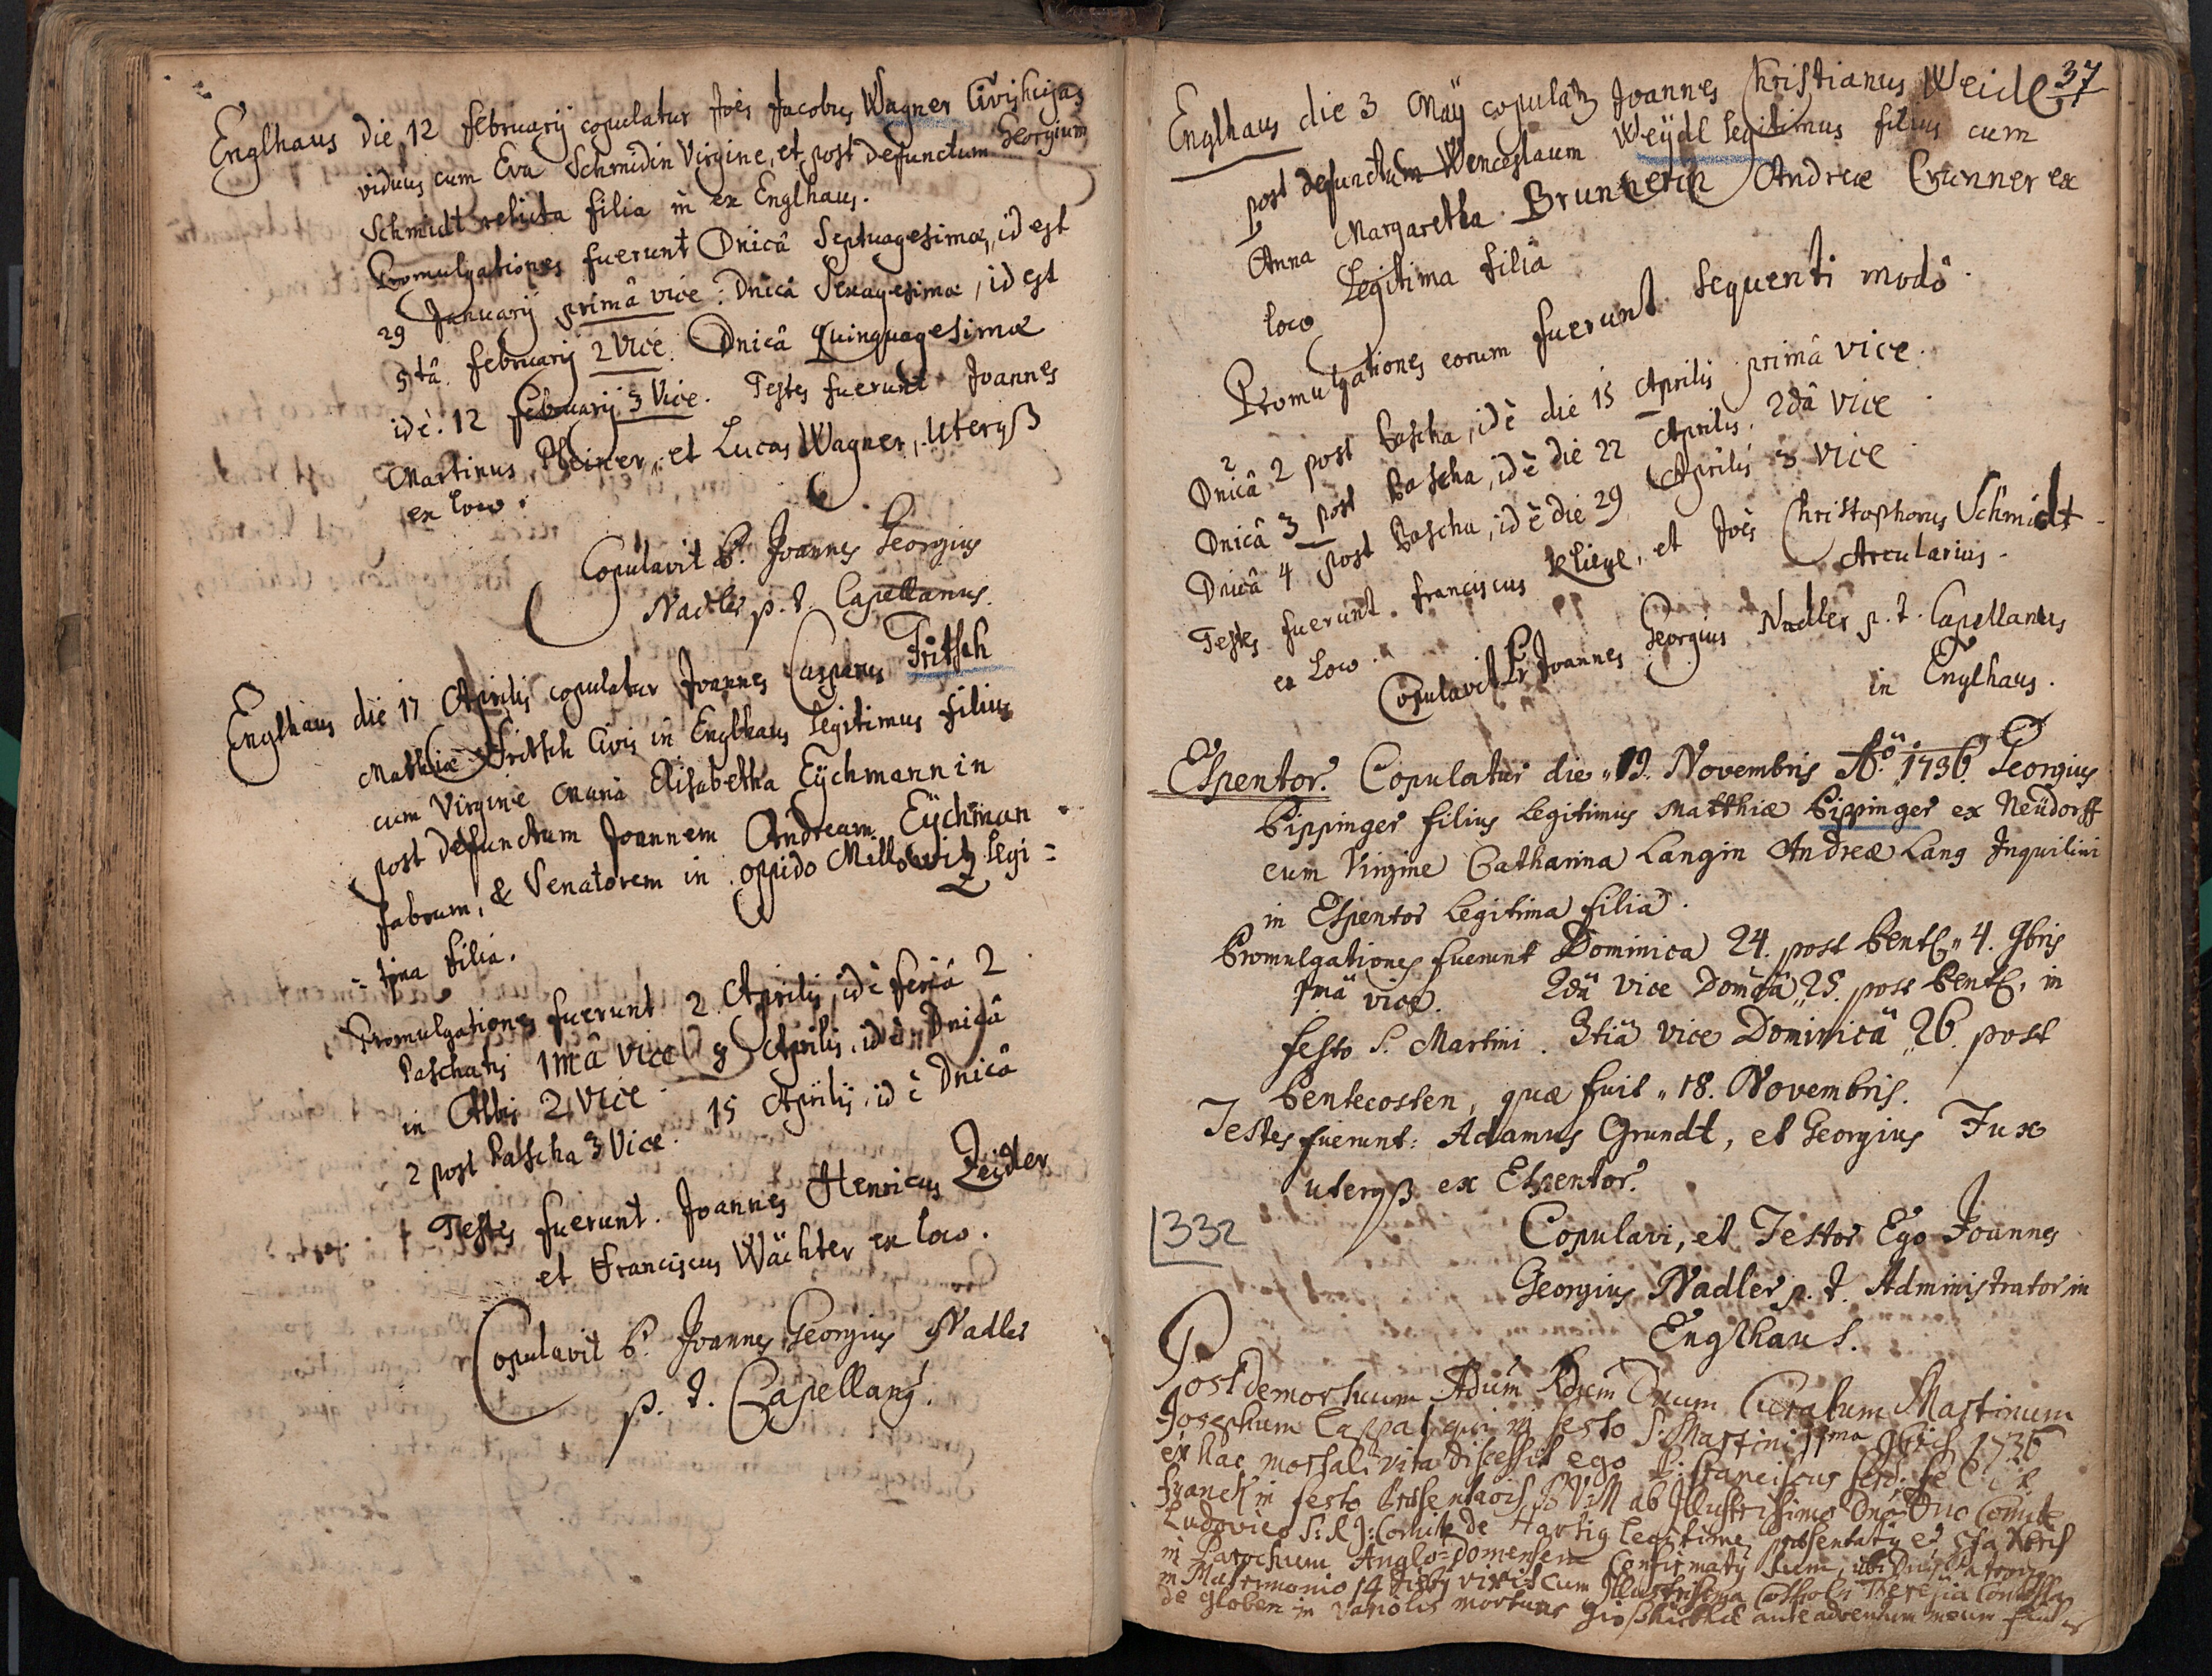 Englhaus die 12 februarij copulatur Joēs Jacobus Wagner Civis
viduus cum Eva Schmidin Virgine, et post defunctum Georgium
Schmidt relicta filia in ex Englhaus.
Promulgationes fuerunt Dnicâ Septuagesimæ, id est
29 Januarij primâ vice: Dnicâ Sexagesimæ, id est
5tâ februarij 2 vice. Dnicâ Quinquagesimæ
id ē. 12 februarij 3 Vice. Testes fuerunt Joannes
Martinus et Lucas Wagner, uterqß
ex loco.
Copulavit P. Joannes Georgius
Nadler p. t. Capellanus.
Englhaus die 17 Aprilis copulatur Joannes Casparus Fritsch
Mathiæ Fritsch Civis in Englhaus legitimus filius
cum Virgine Maria Elisabetha Eÿchmannin
post defunctum Joannem Andream Eÿchman
fabrum, & Senatorem in oppido Millowitz legi=
=tima filia.
Promulgationes fuerunt 2 Aprilis, id ē feriâ 2
Paschatis 1mâ vice 8 Aprilis, id ē Dnicâ
in Albis 2 vice. 15 Aprilis, id ē Dnicâ
2 post Pascha 3 Vice.
Testes fuerunt. Joannes Henricus Zeidler
et Franciscus Wächter ex loco.
Copulavit P. Joannes Georgius Nadler
p. t. Capellanq.
37
Englhaus die 3 Maÿ copulatr Joannes Christianus Weidl
post defunctum Wenceslaum Weÿdl legitimus filius cum
Anna Margaretha Brunnerin Andreæ Brunner ex
loco Legitima filiâ
Promulgationes eorum fuerunt sequenti modô.
Dnicâ 2 post Pascha, id ē die 15 Aprilis primâ vice.
Dnicâ 3 post Pascha, id ē die 22 Aprilis, 2dâ vice
Dnicâ 4 post Pascha, id ē die 29 Aprilis 3 vice
Testes fuerunt. franciscus et Joēs Christophorus Schmidt
ex loco. Arcularius.
Copulavit Pr Joannes Georgius Nadler p. t. Capellanus
in Englhaus.
Espentor. Copulatur die 19. Novembris Aö 1736 Georgius
Pippinger filius legitimus Matthiæ Pippinger ex Neüdorff
cum Virgine Catharina Langin Andreæ Lang Inquilini
in Espentor legitima filia.
Promulgationes fuerunt Dominica 24. post Pent. 4. 9bris
1mâ vice. 2dâ vice Domcâ 25. post Pent. in
festo S. Martini. 3tiâ vice Dominicâ 26. post
Pentecosten, quæ fuit 18. Novembris.
Testes fuerunt: Adamus Grundt, et Georgius Fux
uterqß ex Espentor.
332
Copulavi, et Testor Ego Joannes
Georgius Nadler p. t. Administrator in
Englhaus.
Post demortuum Adum Rdum Dnum Curatum Martinum
Josephum qui in festo S. Martini 11ma 9bris 1736
ex hac mortali vita discessit ego Franciscus
in festo B V M ab Illustrissimo Dno Dno Comite
Ludovico S: R J: Comite de Hartig legitime præsentatq et 5ta Xbris
in Parochum Anglo=domensem Confirmatq sum, ubi
in Matrimonio 14 vixit cum Illustrissima Theresia Comitissa
de Globen in variolis mortuus ante adventum meum